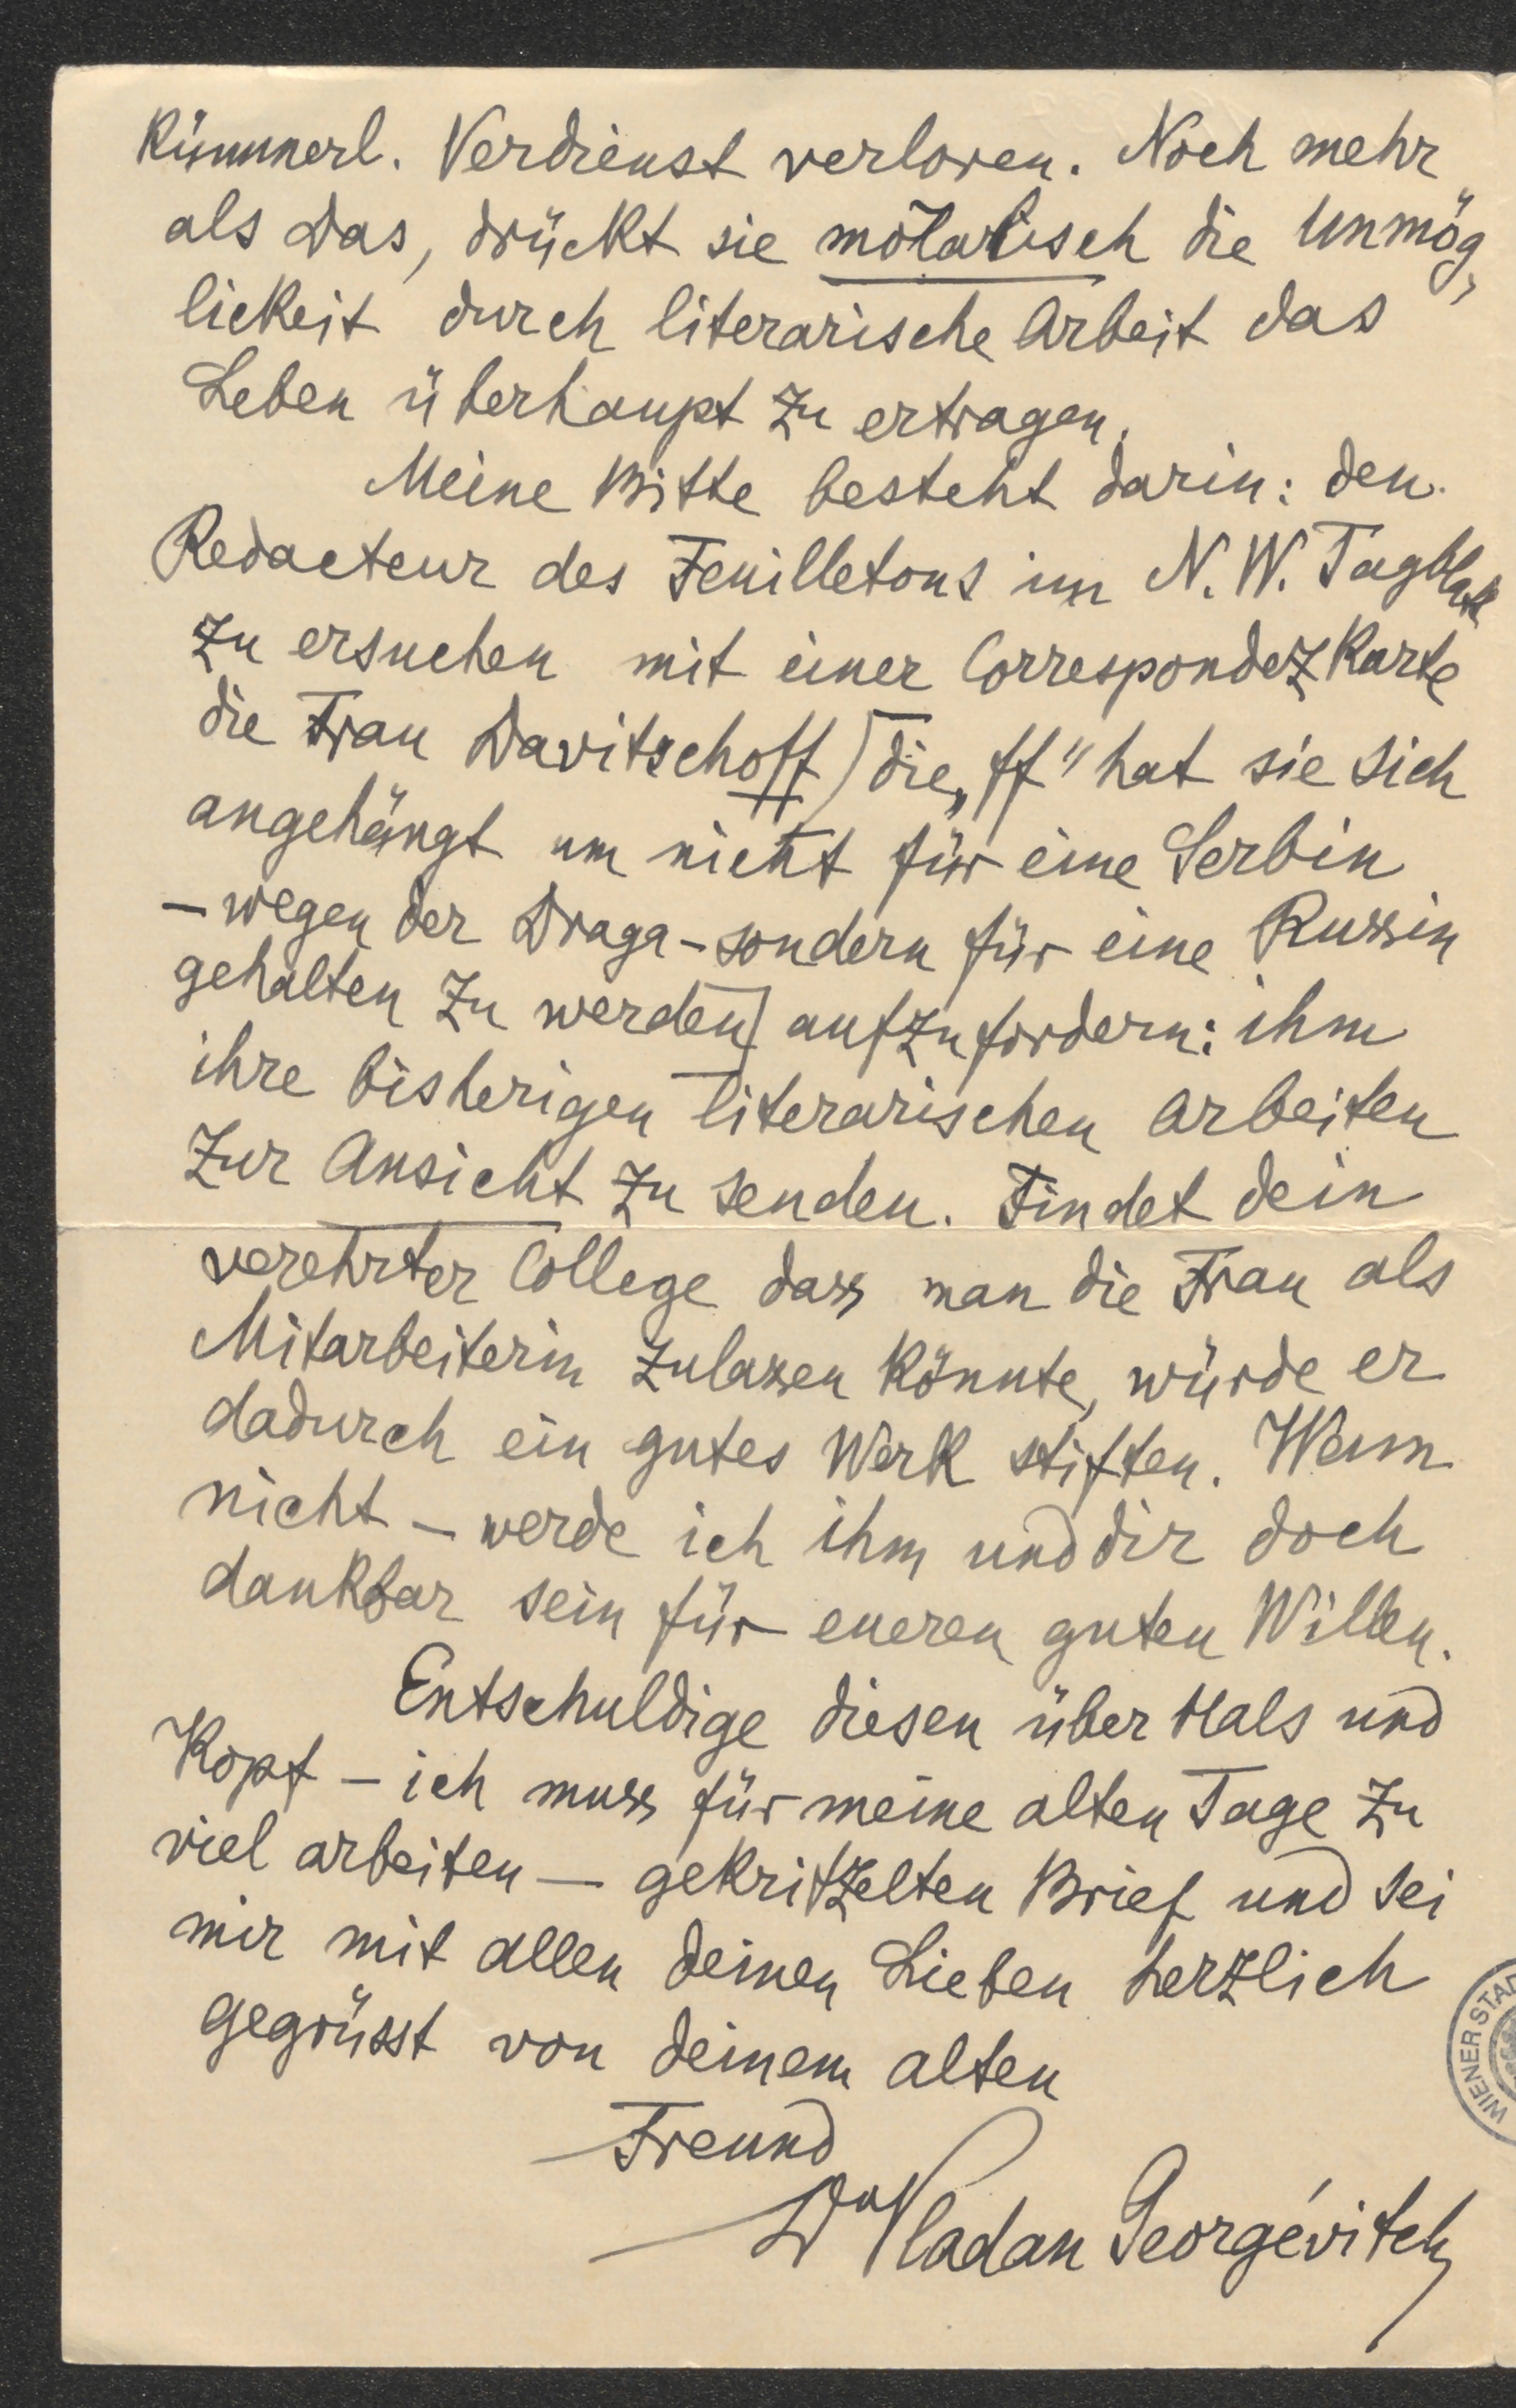 Kümmerl. Verdienst verloren. Noch mehr
als das, drückt sie moralisch die Unmög,
lickeit durch literarische Arbeit das
Leben überhaupt zu ertragen.
Meine Bitte besteht darin: den
Redacteur des Feuilletons im N. W. Tagblatt
zu ersuchen mit einer CorrespondezKarte
die Frau Davitschoff (die „ff" hat sie sich
angehängt um nicht für eine Serbin
– wegen der Draga – sondern für eine Russin
gehalten zu werden) aufzufordern: ihm
ihre bisherigen literarischen Arbeiten
zur Ansicht zu senden. Findet dein
verehrter College dass man die Frau als
Mitarbeiterin zulassen könnte, würde er
dadurch ein gutes Werk stiften. Wenn
nicht – werde ich ihm und dir doch
dankbar sein für eueren guten Willen.
Entschuldige diesen über Hals und
Kopf – ich muss für meine alten Tage zu
viel arbeiten – gekritzelten Brief und sei
mir mit allen deinen Lieben herzlich
gegrüsst von deinem alten
Freund
Dr Vladan Georgévitch
WIENER STAD